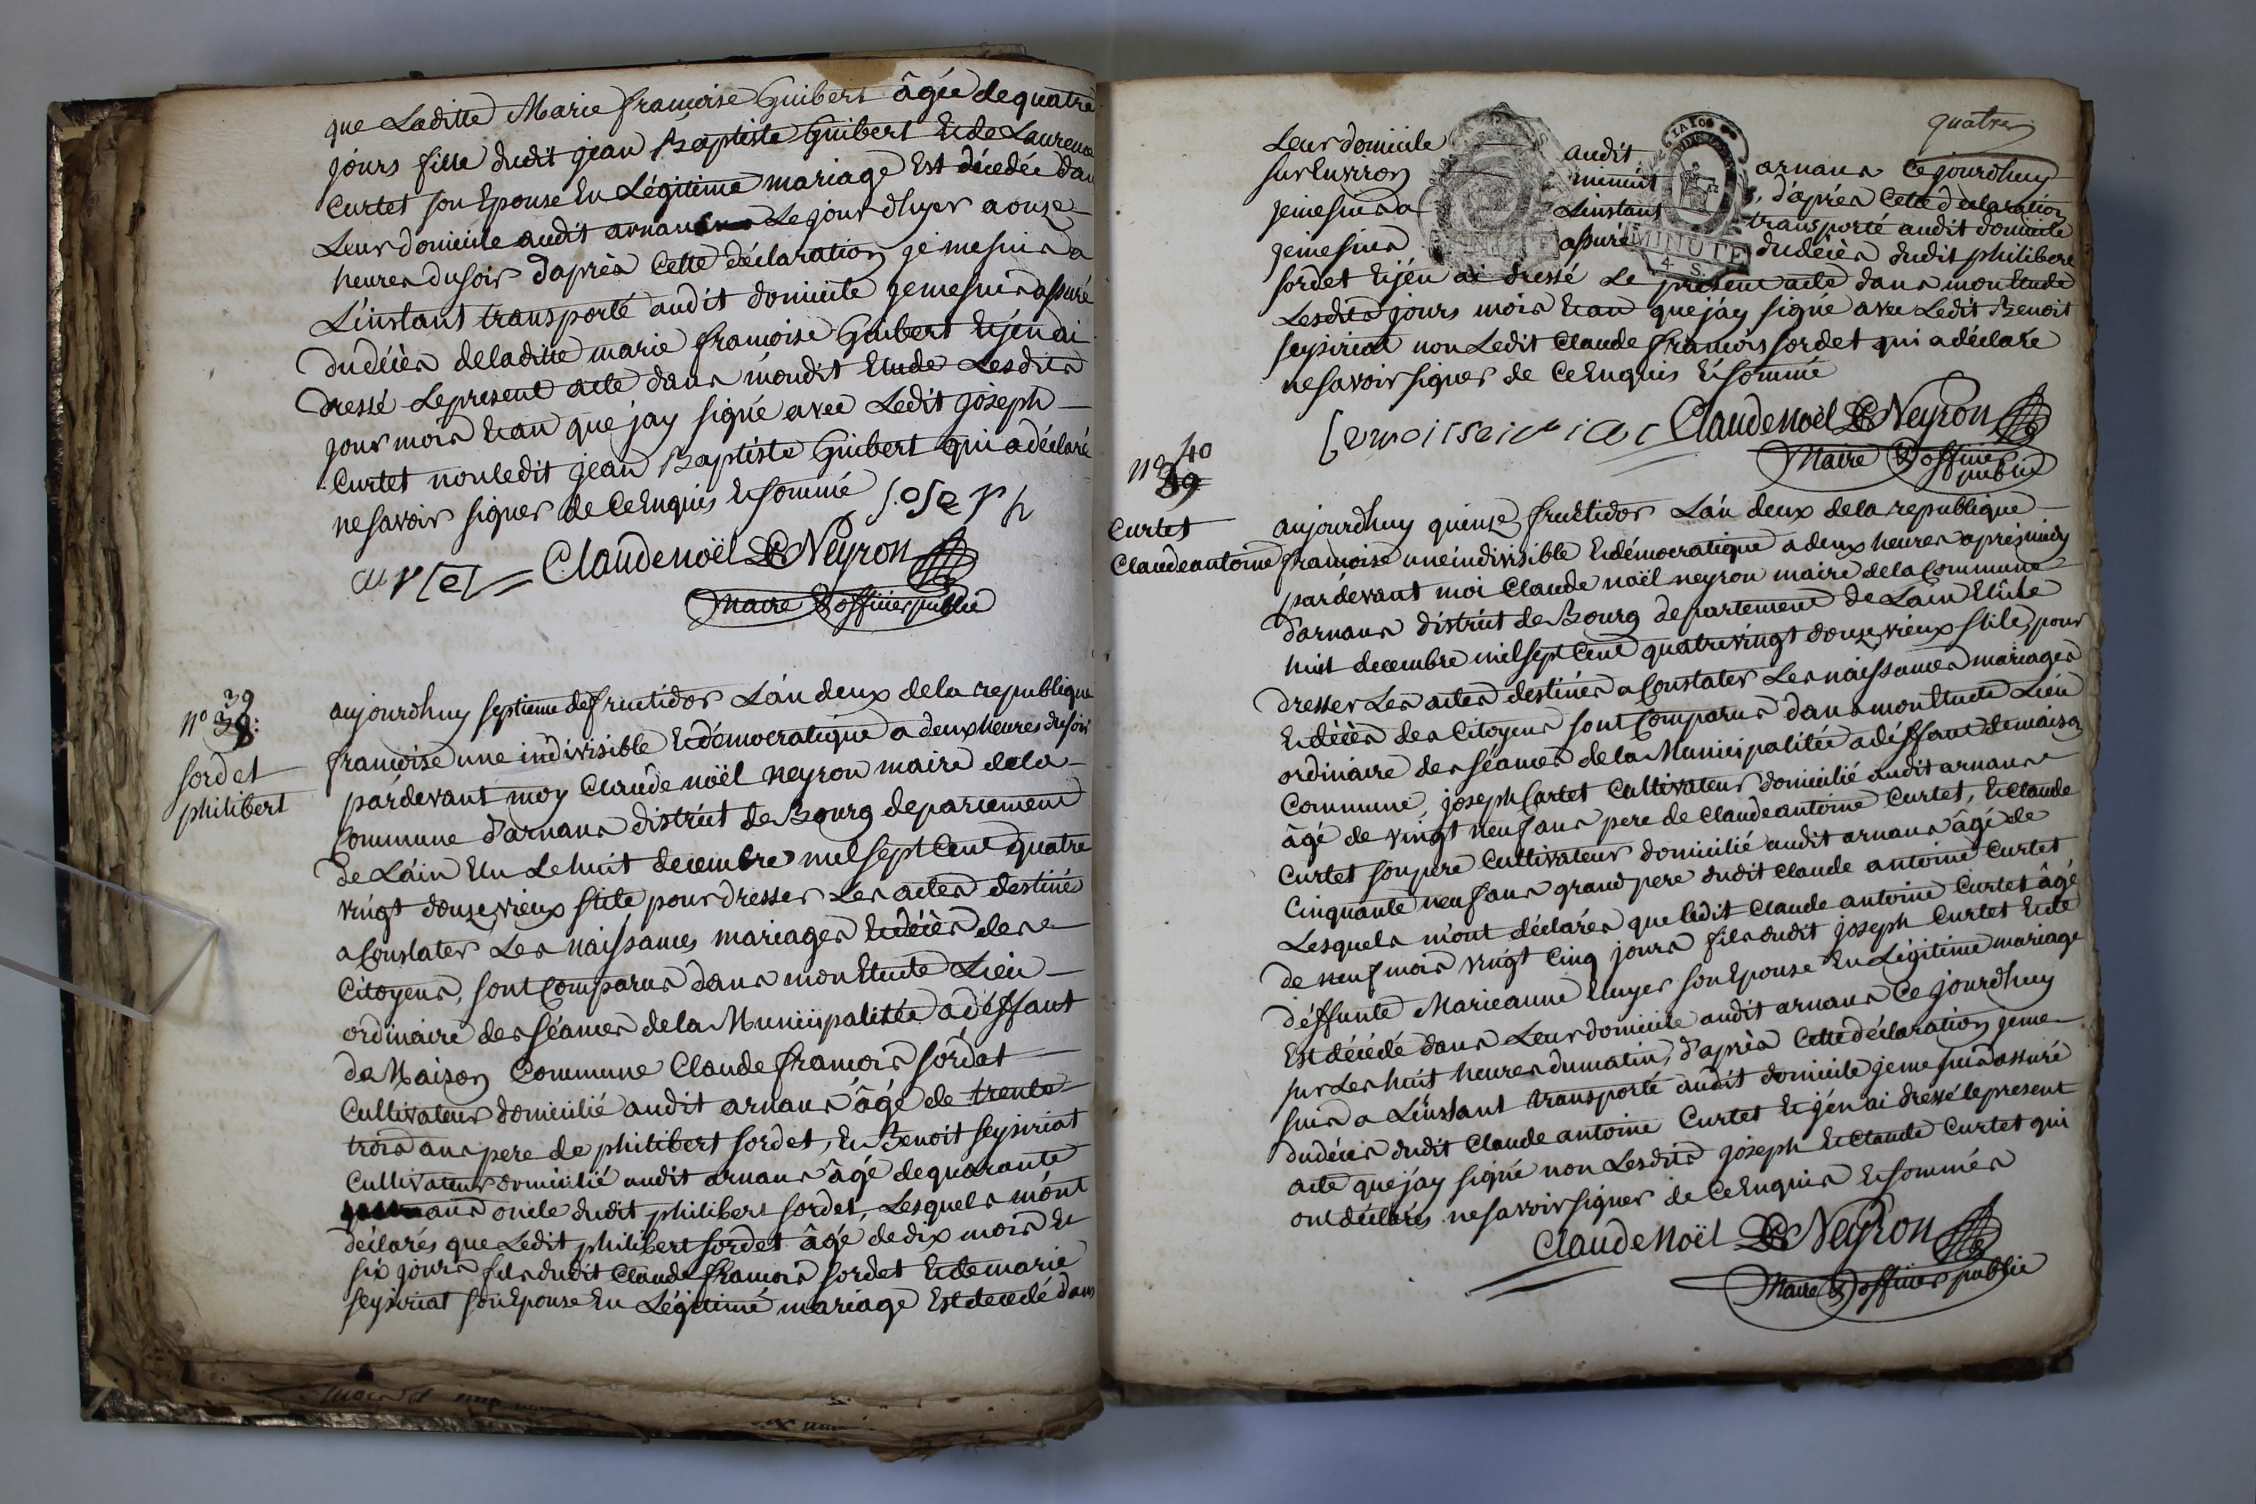 que Laditte Marie françoise Guibert âgée de quatre
jours fille dudit jean Baptiste Guibert et de Laurence
Curtet son Epouse En Légitime mariage Est décedée dan
Leur domicile audit arnans Le jour dhyer a onze
heures du soir d'après Cette déclaration je me suis a
L'instant transporté audit domicile je me suis assuré
du décès de laditte marie françoise Guibert et j'en ai
dressé Le present acte dans mondit Etude Lesdits
jour mois et an que j'ay signé avec Ledit joseph
Curtet non ledit jean Baptiste Guibert qui a déclaré
ne savoir signer de Ce Enquis et sommé joseph
curtet Claude Noël Neyron
Maire & officier public
n° 38 39
sordet
philibert
aujourdhuy septieme de fructidor L'an deux de la republique
françoise une indivisible et démocratique a deux heures du soir
pardevant moy Claude noël neyron maire de la
Commune d'arnans district de Bourg departement
de L'ain Elu Le huit decembre mil sept Cent quatre
vingt douze vieux stile pour dresser Les actes destinés
a Constater Les naissances mariages et décès des
Citoyens, sont Comparus dans mon Etude Lieu
ordinaire des séances de la Municipalitée a déffaut
de Maison Commune Claude françois sordet
Cultivateur domicilié audit arnans âgé de trente
trois ans pere de philibert sordet, et Benoit seysiriat
Cultivateur domicilié audit arnans âgé de quarante
ans oncle dudit philibert sordet, Lesquels m'ont
déclarés que Ledit philibert sordet âgé de dix mois et
six jours fils dudit Claude françois sordet et de marie
seysiriat son Epouse En Légitime mariage Est decedé dans
quatre
Leur domicile audit arnans Ce jourdhuy
sur Environ minuit, d'après Cette déclaration
je me suis a L'instant transporté audit domicile
je me suis assuré du décès dudit philibert
MINUTE
4. S.
sordet et j'en ai dressé Le présent acte dans mon Etude
Lesdits jours mois et an que j'ay signé avec Ledit Benoit
seysiriat non Ledit Claude françois sordet qui a déclaré
ne savoir signer de Ce Enquis et sommé
Claude Noël Neyron
Maire & officier
public
n° 39 40
Curtet
Claude antoine
aujourdhuy quinze fructidor L'an deux de la republique
françoise une indivisible et démocratique a deux heures après midy
pardevant moi Claude noël neyron maire de la Commune
d'arnans district de Bourg departement de L'ain Elu le
huit decembre mil sept Cent quatre vingt douze vieux stile, pour
dresser Les actes destinés a Constater Les naissances mariages
et décès des Citoyens sont Comparus dans mon Etude Lieu
ordinaire des séances de la Municipalitée a déffaut de maison
Commune, joseph Curtet Cultivateur domicilié audit arnans
âgé de vingt neuf ans pere de Claude antoine Curtet, et Claude
Curtet son pere Cultivateur domicilié audit arnans âgé de
Cinquante neuf ans grand pere dudit Claude antoine Curtet
Lesquels m'ont déclarés que ledit Claude antoine Curtet âgé
de neuf mois vingt Cinq jours fils dudit joseph Curtet et de
déffunte Marieanne son Epouse En Légitime mariage
Est décédé dans Leur domicile audit arnans Ce jourdhuy
sur Les huit heures du matin, d'après Cette déclaration je me
suis a L'instant transporté audit domicile je me suis assuré
du décès dudit Claude antoine Curtet et j'en ai dressé le present
acte que j'ay signé non Lesdits joseph et Claude Curtet qui
ont déclarés ne savoir signer de Ce Enquis et sommés
Claude Noël Neyron
Maire & officier public